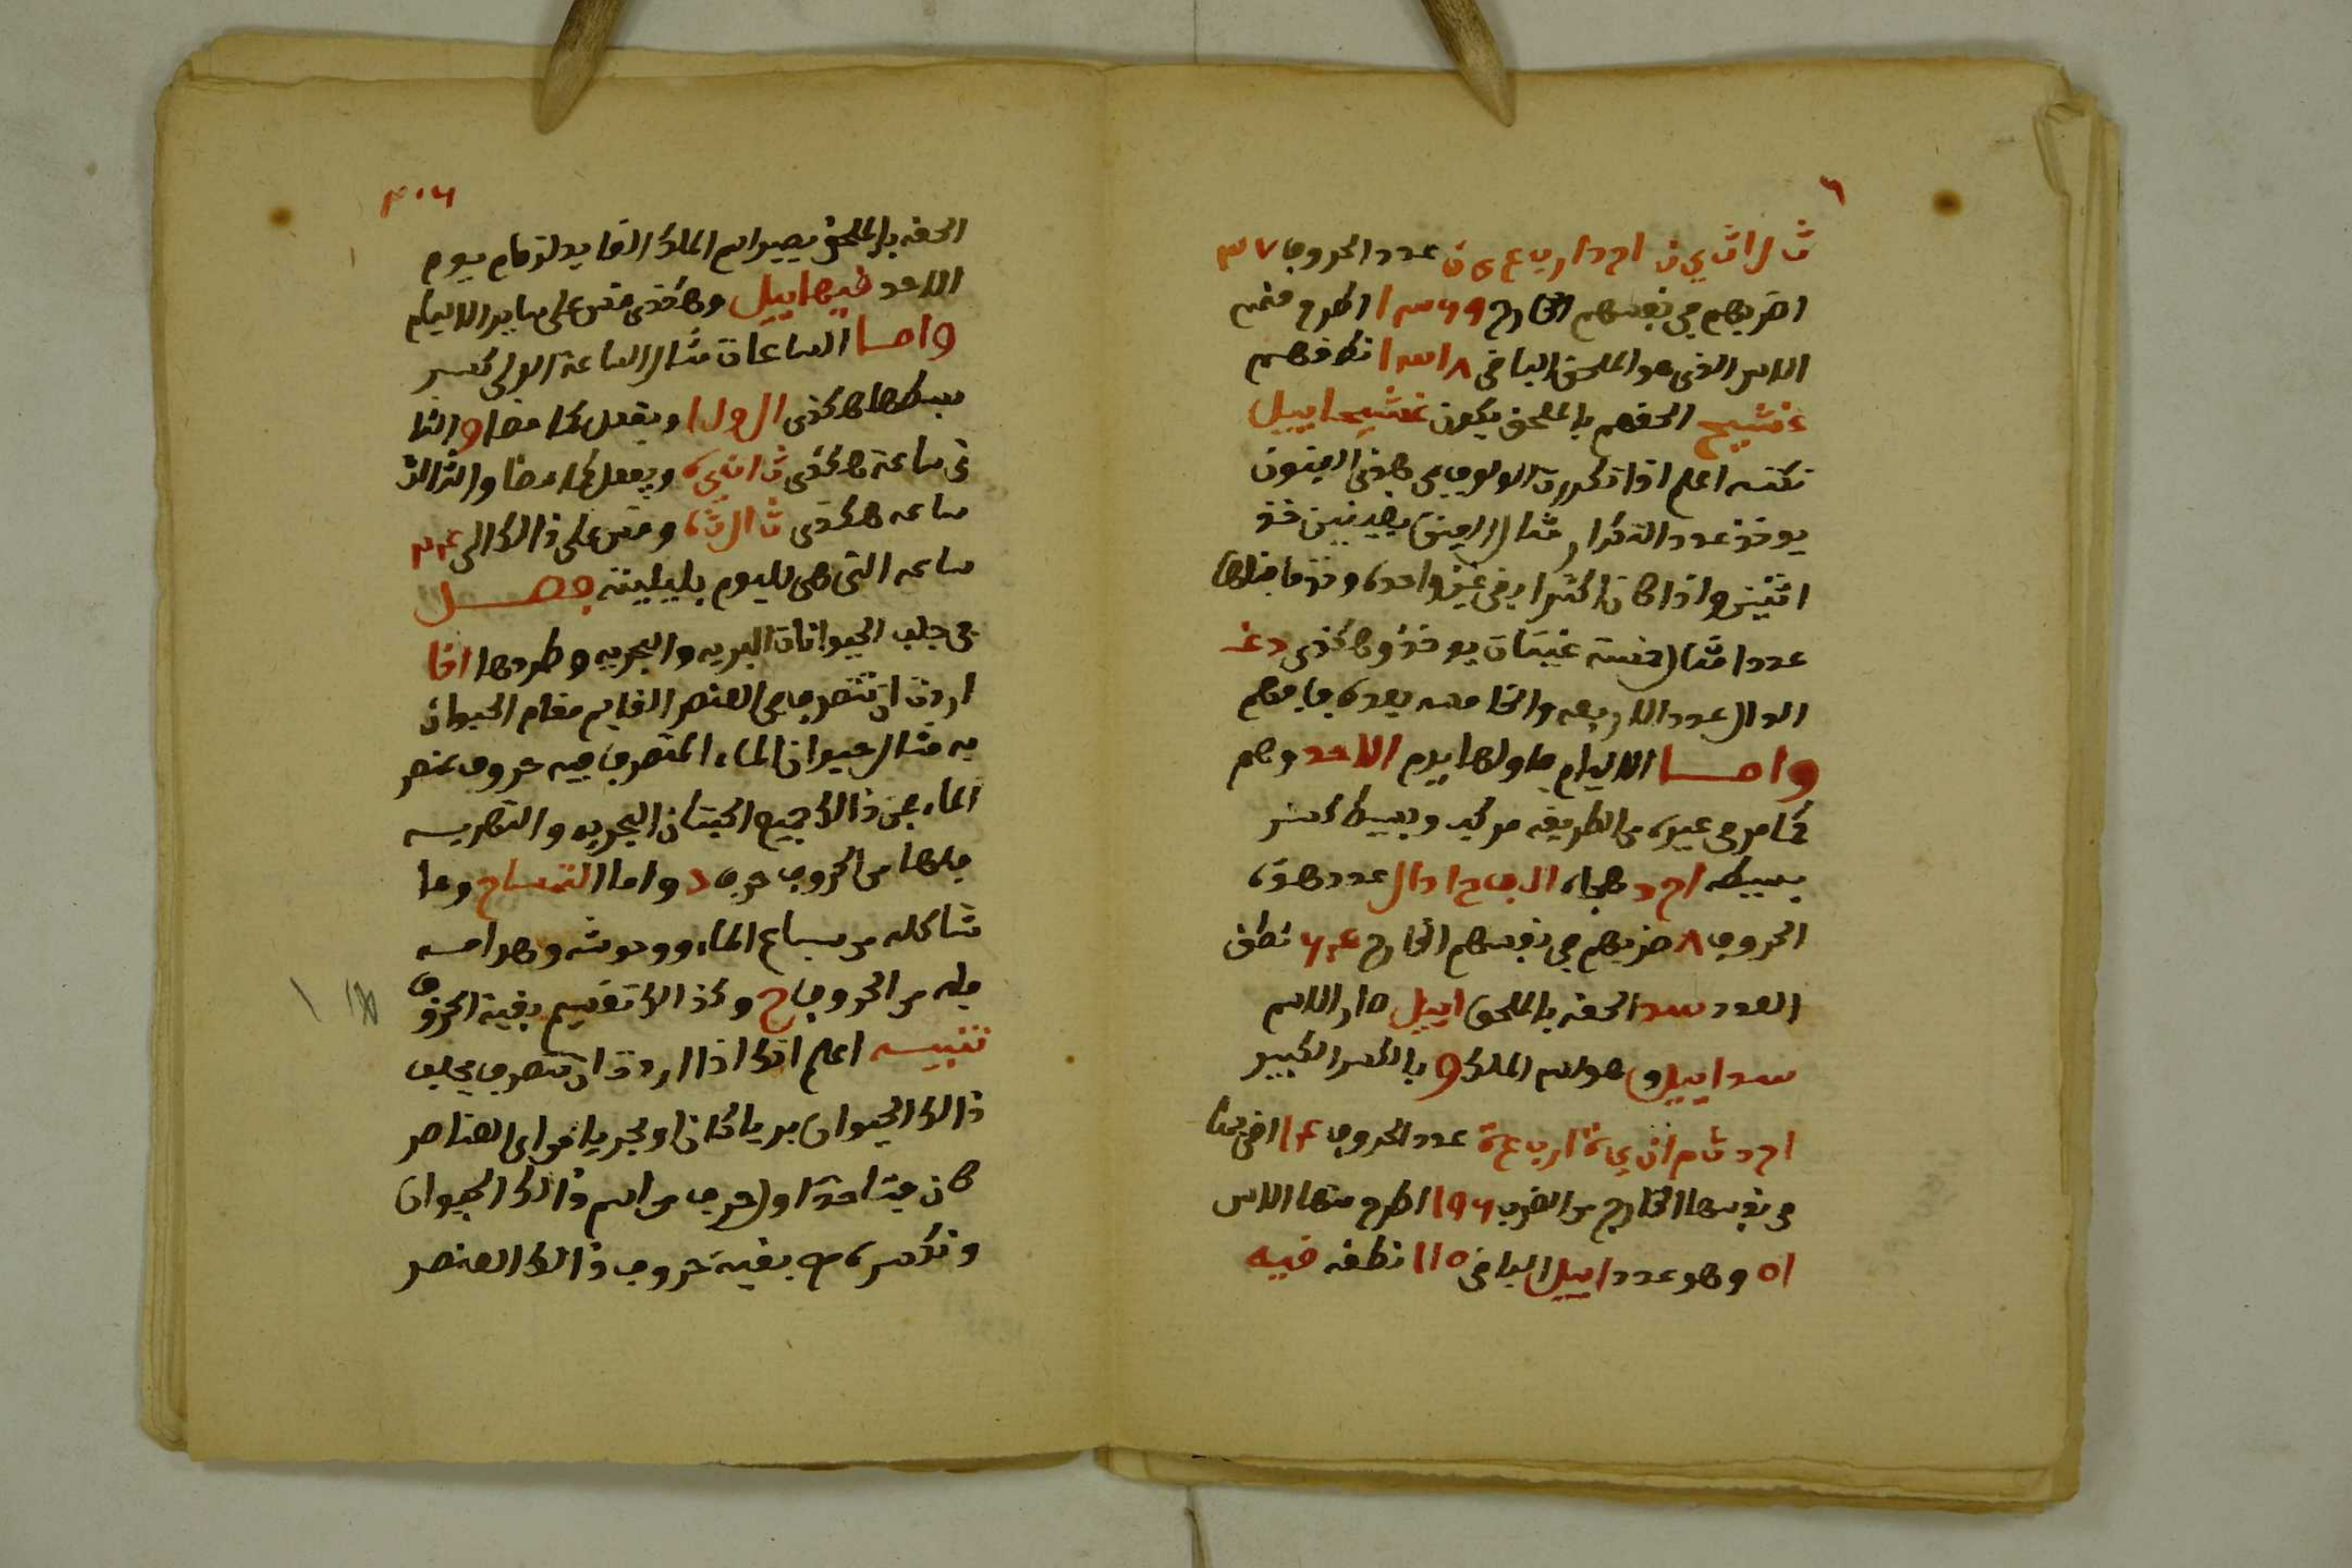 ٦
ث ل ا ث ي ن ا ح د ا ر ب ع ي ن عدد الحروف ٣٧
اضربهم في نفسهم الخارج ١٣٦٩ اطرح منهم
الاس الذي هو الملحق الباقي ١٣١٨ نطقهم
غشيح الحقهم بالملحق يكون غشيحاييل
نكته اعلم اذا تكررت الولوف هي هذي الغينون
يوخذ عدد التكرار مثال الغين بغينين خذ
اثنين واذا كان اكثر ابقي غين واحده وخذ ما قبلها
عددا مثال خمسة غينات يوخذو هكذى دغ
الدال عدد الاربعه والخامسه بعده فافهم
واما الايام فاولها يوم الاحد وهم
كما مر في غيره من الطريقه مركب وبسيط كسر
بسيطه ا ح د هجاه الف حا دال عدد هذه
الحروف ٨ ضربهم في نفسهم الخارج ٦٤ نطق
العدد سد الحقه بالملحق اييل صار الاسم
سداييل وهو اسم الملك و بالكسر الكبير
ا ح د ث م ا ن ي ة ا ر ب ع ة عدد الحروف ١٤ اضربها
في نفسها الخارج من الضرب ١٩٦ اطرح منها الاس
٥١ وهو عدد اييل الباقي ١٤٥ نطقه قيه
٤٠٦
الحقه بالملحق يصير اسم الملك القايد لزمام يوم
الاحد قيهاييل وهكذى قس على ساير الايام
واما الساعات مثال الساعة الولى كسر
بسطها هكذى ا ل و ل ا ويفعل كما مضا والثا
ني ساعة هكذى ث ا ن ي ه ويفعل كما مضا والثالث
ساعه هكذى ث ا ل ث ه وقس على ذالك الى ٢٤
ساعه التي هي لليوم بليليته فصل
في جلب الحيوانات البريه والبحريه وطردها اذا
اردت ان تتصرف في العنصر القايم مقام الحيوان
به مثال حيوان الماء المتصرف فيه حروف عنصر
الماء فمن ذالك جميع الحيتان البحريه والنهريه
فلها من الحروف حرف د واما التمساح وما
شاكله من سباع الماء ووحوشه وهوامه
فله من الحروف ح وكذالك تقسيم بقية الحروف
تنبيه اعلم انك اذا اردت ان تتصرف بجلب
ذالك الحيوان بريا كان او بحريا من اي العناصر
كان فتاخذ اول حرف من اسم ذالك الحيوان
وتكسره مع بقية حروف ذالك العنصر